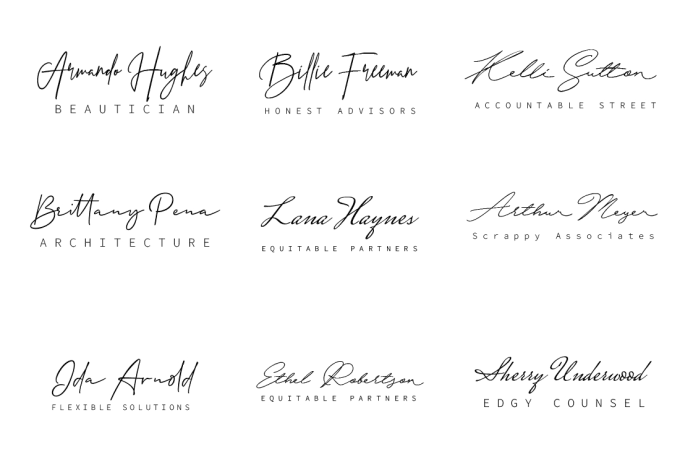 Armando Hughes
BEAUTICIAN
Billie Freeman
HONEST ADVISORS
Kelli Sutton
ACCOUNTABLE STREET
Brittany Pena
ARCHITECTURE
Lana Haynes
EQUITABLE PARTNERS
Arthur Meyer
Scrappy Associates
Ida Arnold
FLEXIBLE SOLUTIONS
Ethel Robertson
EQUITABLE PARTNERS
Sherry Underwood
EDGY COUNSEL